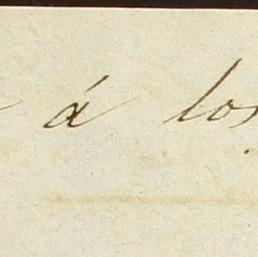 á los